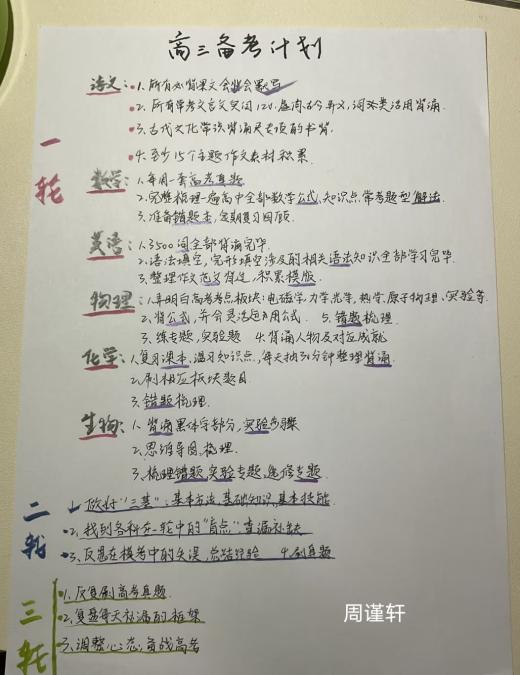 高三备考计划
语文: 1. 所有必背课文会背会默写
2. 所有常考文言文实词120.虚词古今异义,词类活用背诵.
3. 古代文化常识背诵
4. 至少15个主题作文素材积累.
一轮
数学: 1. 每周一套高考真题
2. 完整梳理一遍高中全部数学公式,知识点,常考题型解法.
3. 准备错题本,定期复习回顾
英语: 1. 3500词全部背诵完毕.
2. 语法填空,完形填空涉及的相关语法知识全部学习完毕.
3. 整理作文范文背过,积累模版.
物理: 1. 弄明白高考考点板块:电磁学,力学光学,热学,原子物理、实验等
2. 背公式,并会灵活运用公式. 5. 错题梳理
3. 练专题,实验题 4. 背诵人物及对应成就
化学: 1. 复习课本,温习知识点,每天抽30分钟整理背诵.
2. 刷相应板块题目
3. 错题梳理.
生物: 1. 背诵黑体字部分,实验步骤
2. 思维导图,梳理.
3. 梳理错题,实验专题,选修专题.
二轮
1. 做好“三基”:基本方法,基础知识,基本技能.
2. 找到各科在一轮中的“盲点”.查漏补缺
3. 反思在模考中的失误,总结经验 4. 刷真题
三轮
1. 反复刷高考真题.
2. 复盘每天补漏的框架
3. 调整心态,奋战高考
周谨轩